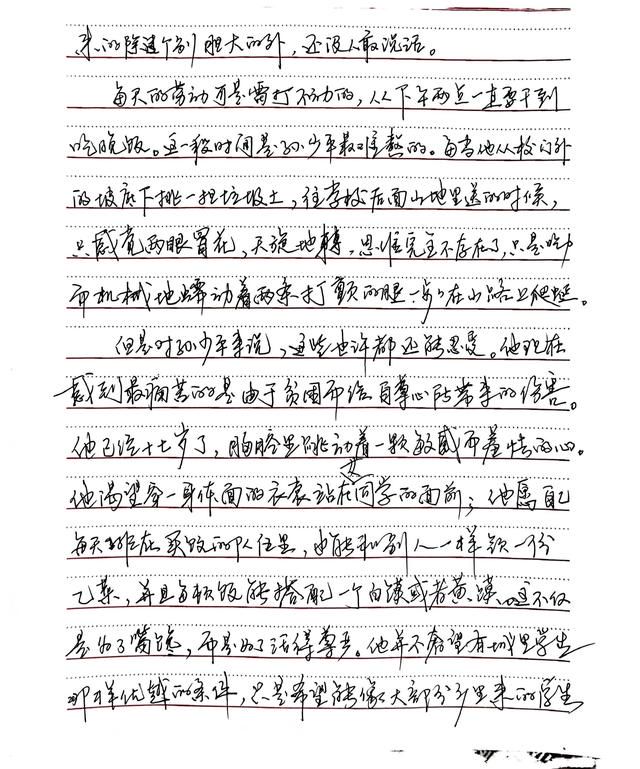 来的除过个别胆大的外，还没人敢说话。
每天的劳动可是雷打不动的，从下午两点一直要干到
吃晚饭。这一段时间是孙少平最难熬的。每当他从校门外
的坡底下挑一担垃圾土，往学校后面山地里送的时候，
只感觉两眼冒花，天旋地转，思维完全不存在了，只是吃力
而机械地蠕动着两条打颤的腿一步步在山路上爬蜒。
但是对孙少平来说，这些也许都还能忍受。他现在
感到最痛苦的是由于贫困而给自尊心所带来的伤害。
他已经十七岁了，胸腔里跳动着一颗敏感而羞怯的心。
他渴望穿一身体面的衣裳站在女同学的面前；他愿自己
每天排在买饭的队伍里，也能和别人一样领一份
乙菜，并且每顿饭能搭配一个白馍或者黄馍。这不仅
是为了嘴馋，而是为了活得尊严。他并不奢望有城里学生
那样优越的条件，只是希望能像大部分乡里来的学生